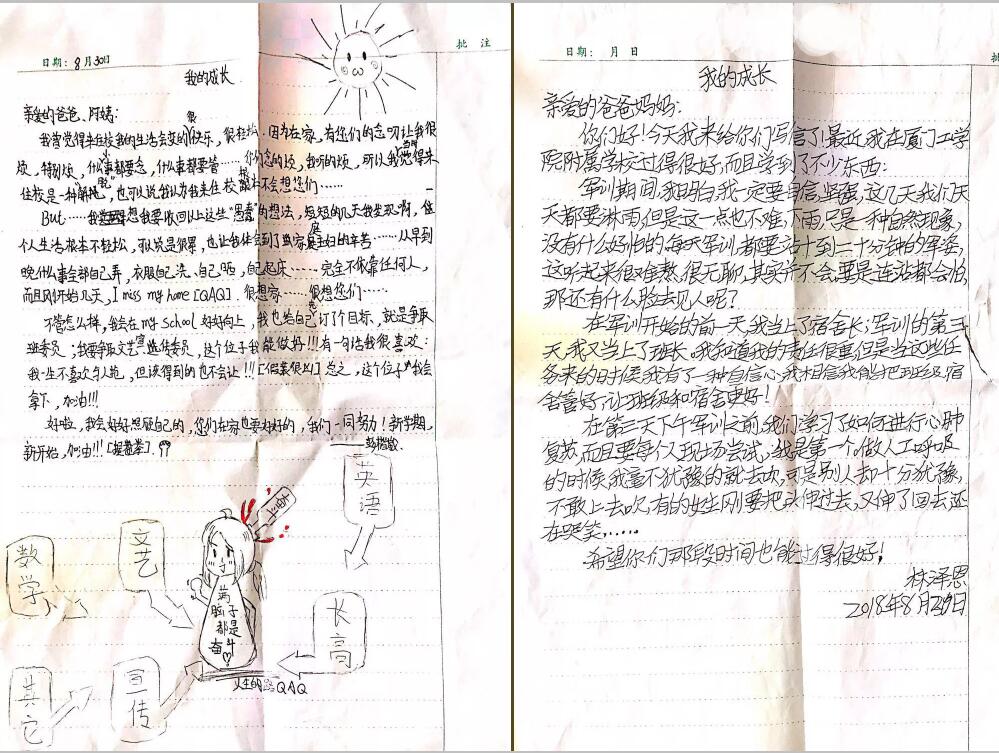 日期: 8月30日
批 注
我的成长
亲爱的爸爸、阿姨:
我曾觉得来住校我的生活会变的很快乐,很轻松.因为在家,有您们的念叨让我很
烦,特别烦,什么事都要念,什么事都要管……你们念的烦,我听的烦,所以我当时觉得来
住校是一种解脱,也可以说我认为我来住校根本不会想您们……
But……我要收回以上这些"愚蠢"的想法,短短的几天我发现啊,住
个人生活根本不轻松,可以说是很累,也让我体会到了当家庭主妇的辛苦……从早到
晚什么事全部自己弄,衣服自己洗、自己晒,自己起床……完全不依靠任何人,
而且刚开始几天,I miss my home [QAQ].很想家……很想您们……
不管怎么样,我会在my school好好向上,我也给自己订了个目标,就是争取
班委员;我要争取文艺、宣传委员,这个位子我能做好!!!有一句话我很喜欢:
我一生不喜欢与人抢,但该得到的也不会让!!![假装很凶]总之,这个位子我会
拿下,加油!!!
好啦,我会好好照顾自己的,您们在家也要好好的,我们一同努力!新学期,
新开始,加油!!![握拳拳]
英语
奋斗
数学
文艺
满脑子都是奋斗
长高
其它
宣传
人生的路QAQ
日期: 月 日
批
我的成长
亲爱的爸爸妈妈:
你们好!今天我来给你们写信了!最近,我在厦门工学
院附属学校过得很好,而且学到了不少东西:
军训期间,我明白,我一定要自信,坚强,这几天我们天
天都要淋雨,但是这一点也不难,下雨,只是一种自然现象,
没有什么好怕的,每天军训,都要站十到二十分钟的军姿,
这听起来很难熬,很无聊,其实并不会,要是连站都会怕,
那还有什么脸去见人呢?
在军训开始的前一天,我当上了宿舍长;军训的第三
天,我又当上了班长。我知道我的责任很重但是当这些任
务来的时候,我有了一种自信心,我相信我能把班级,宿
舍管好,让班级和宿舍更好!
在第三天下午军训之前,我们学习了如何进行心肺
复苏,而且要每个人现场尝试,我是第一个。做人工呼吸
的时候,我毫不犹豫的就去吹,只是别人却十分犹豫,
不敢上去吹,有的女生刚要把头伸过去,又伸了回去,还
在哭笑,……
希望你们那段时间也能过得很好!
林泽恩
2018年8月29日